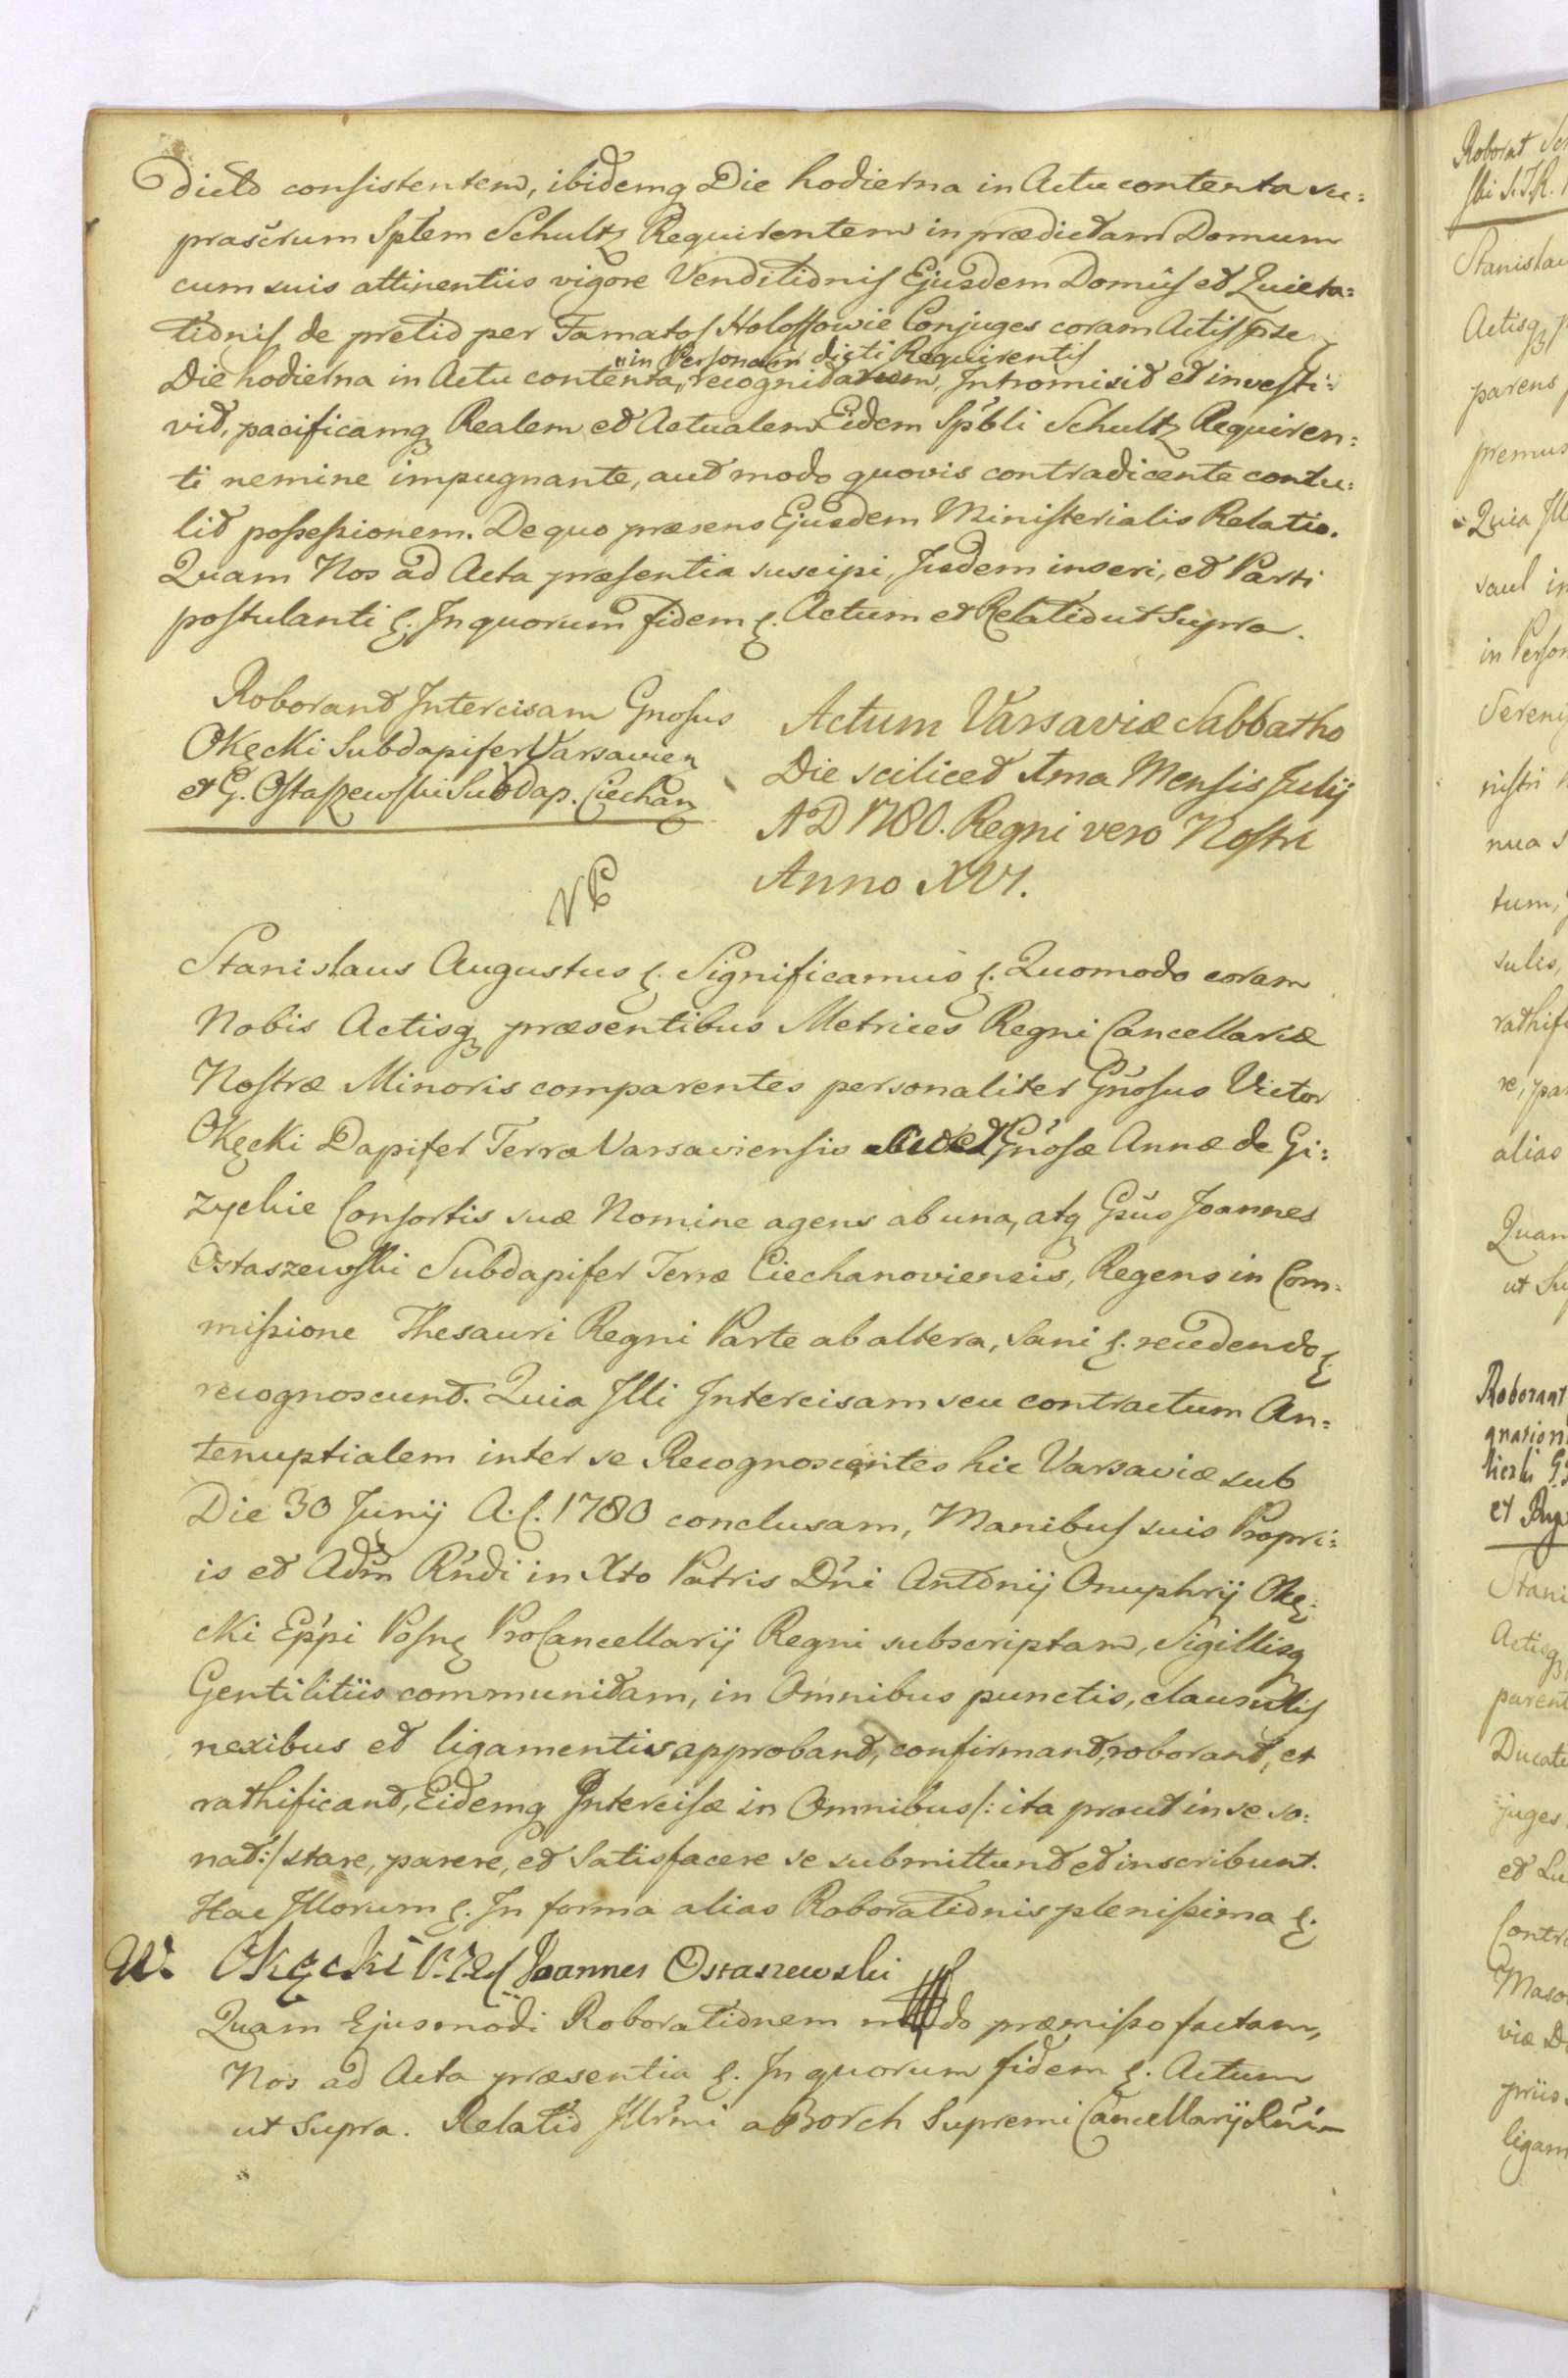 dicto consistentem, ibidemq Die hodierna in Actu contenta su:
prascrum Sptem Schultz Requirentem in prædictam Domum
cum suis attinentiis vigore Venditionis Ejusdem Domûs et Quieta:
tionis de pretio per Famatos Holossowie Conjuges coram Actis pste
in Personam dicti Requirentis
Die hodierna in Actu contenta, recognitarum, Intromisit et investi:
vit, pacificamq Realem et Actualem Eidem Spbli Schultz Requiren:
ti nemine impugnante, aut modo quovis contradicente contu:
lit possessionem. De quo præsens Ejusdem Ministerialis Relatio.
Quam Nos ad Acta præsentia suscipi, Jisdem inseri, et Parti
postulanti &. In quorum fidem &. Actum et Relatio ut Supra.
Roborant Intercisam Gnosus
Okęcki Subdapifer Varsavien
et G. Ostaszewski Subdap. Ciechan
Actum Varsaviæ Sabbatho
Die scilicet 1ma Mensis Julij
AD 1780. Regni vero Nostri
Anno XVI.
Stanislaus Augustus &. Significamus &. Quomodo coram
Nobis Actisq præsentibus Metrices Regni Cancellariæ
Nostræ Minoris comparentes personaliter Gnosus Victor
Okęcki Dapifer Terræ Varsaviensis suo et Gnosæ Annæ de Gi:
zyckie Consortis suæ Nomine agens ab una, atq Gsus Joannes
Ostaszewski Subdapifer Terræ Ciechanoviensis, Regens in Com:
missione Thesauri Regni Parte ab altera, Sani &. recedendo &
recognoscunt. Quia Illi Intercisam seu contractum An:
tenuptialem inter se Recognoscentes hic Varsaviæ sub
Die 30 Junij A. C. 1780 conclusam, Manibus suis Propri:
is et Adm Rndi in Xto Patris Dni Antonij Onuphrij Okę:
cki Eppi Posn ProCancellarij Regni subscriptam, Sigillisq
Gentilitiis communitam, in Omnibus punctis, clausulis
nexibus et ligamentis approbant, confirmant, roborant, et
rathificant, Eidemq Intercisæ in Omnibus /: ita prout in se so:
nat :/ stare, parere, et Satisfacere se submittunt et inscribunt.
Hac Illorum &. In forma alias Roborationis plenissima &.
W. Okęcki Joannes Ostaszewski
Quam Ejusmodi Roborationem modo præmisso factam,
Nos ad Acta præsentia &. In quorum fidem &. Actum
ut Supra. Relatio Illrmi a Borch Supremi Cancellarij Rni
Roborat
Stanislau
Actisq p
parens
premus
Quia Ill
saul in
in Person
Sereni
nistri
nua s
tum,
sulis,
rathifi
re, par
alias
Quam
ut Su
Roborant
gnation
et
Stani
Actisq
parent
Ducatu
juges
et Lu
Contra
Maso
viæ D
priis
ligam